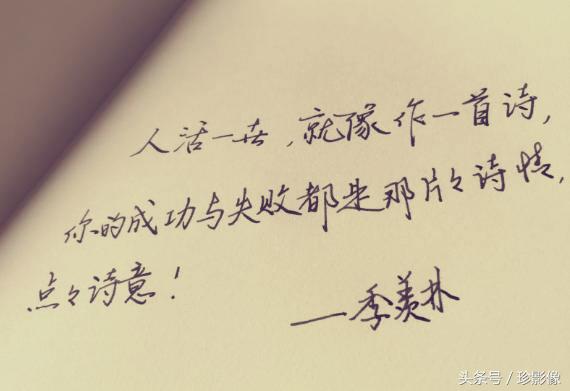 人活一世,就像作一首诗,
你的成功与失败都是那片々诗情,
点々诗意!
——季羡林
头条号 / 珍影像